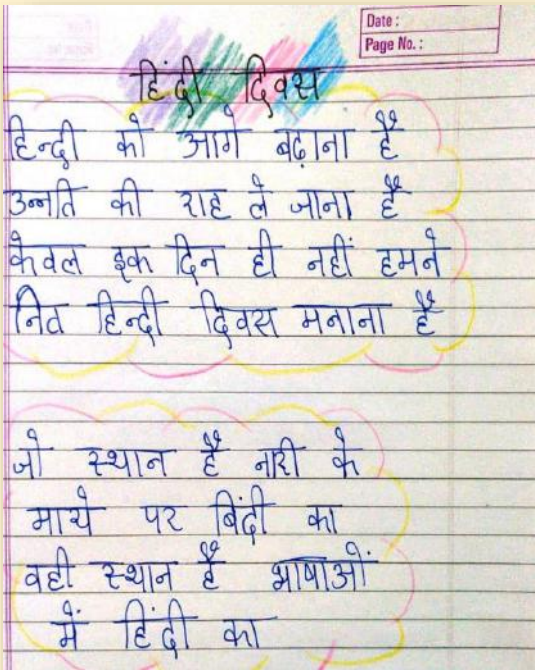 Date :
Page No. :
हिंदी दिवस
हिन्दी को आगे बढ़ाना है
उन्नति की राह ले जाना है
केवल इक दिन ही नहीं हमने
नित हिन्दी दिवस मनाना है
जो स्थान है नारी के
माथे पर बिंदी का
वही स्थान है भाषाओं
में हिंदी का